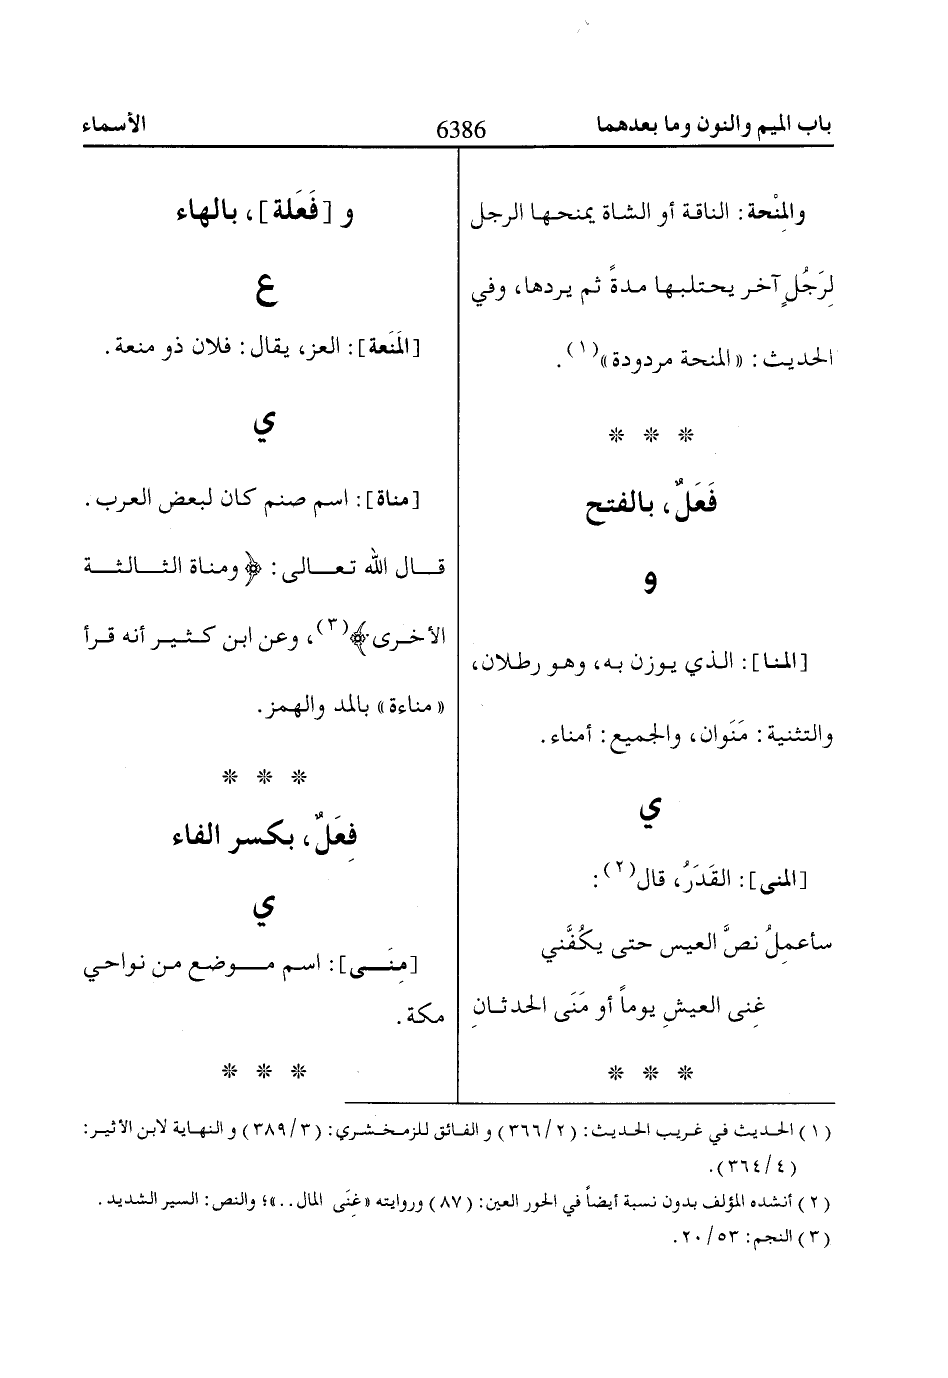 باب الميم والنون وما بعدهما
6386
الأسماء
والمِنْحة: الناقة أو الشاة يمنحها الرجل
لِرَجُلٍ آخر يحتلبها مدةً ثم يردها، وفي
الحديث: «المنحة مردودة»(١).
* * *
فَعَلٌ، بالفتح
و
[المنا]: الذي يوزن به، وهو رطلان،
والتثنية: مَنَوان، والجميع: أمناء.
ي
[المنى]: القَدَرُ، قال(٢):
سأعمِلُ نصَّ العيس حتى يكُفَّني
غِنى العيشِ يوماً أو مَنَى الحدثانِ
* * *
و [فَعَلة]، بالهاء
ع
[المَنَعة]: العز، يقال: فلان ذو منعة.
ي
[مناة]: اسم صنم كان لبعض العرب.
قال الله تعالى: ﴿ومناة الثالثة
الأخرى﴾(٣)، وعن ابن كثير أنه قرأ
«مناءة» بالمد والهمز.
* * *
فِعَلٌ، بكسر الفاء
ي
[مِنَى]: اسم موضع من نواحي
مكة.
* * *
(١) الحديث في غريب الحديث: (٣٦٦/٢) و الفائق للزمخشري: (٣٨٩/٣) و النهاية لابن الأثير:
(٣٦٤/٤).
(٢) أنشده المؤلف بدون نسبة أيضاً في الحور العين: (٨٧) وروايته «غنَى المال..»؛ والنص: السير الشديد.
(٣) النجم: ٢٠/٥٣.